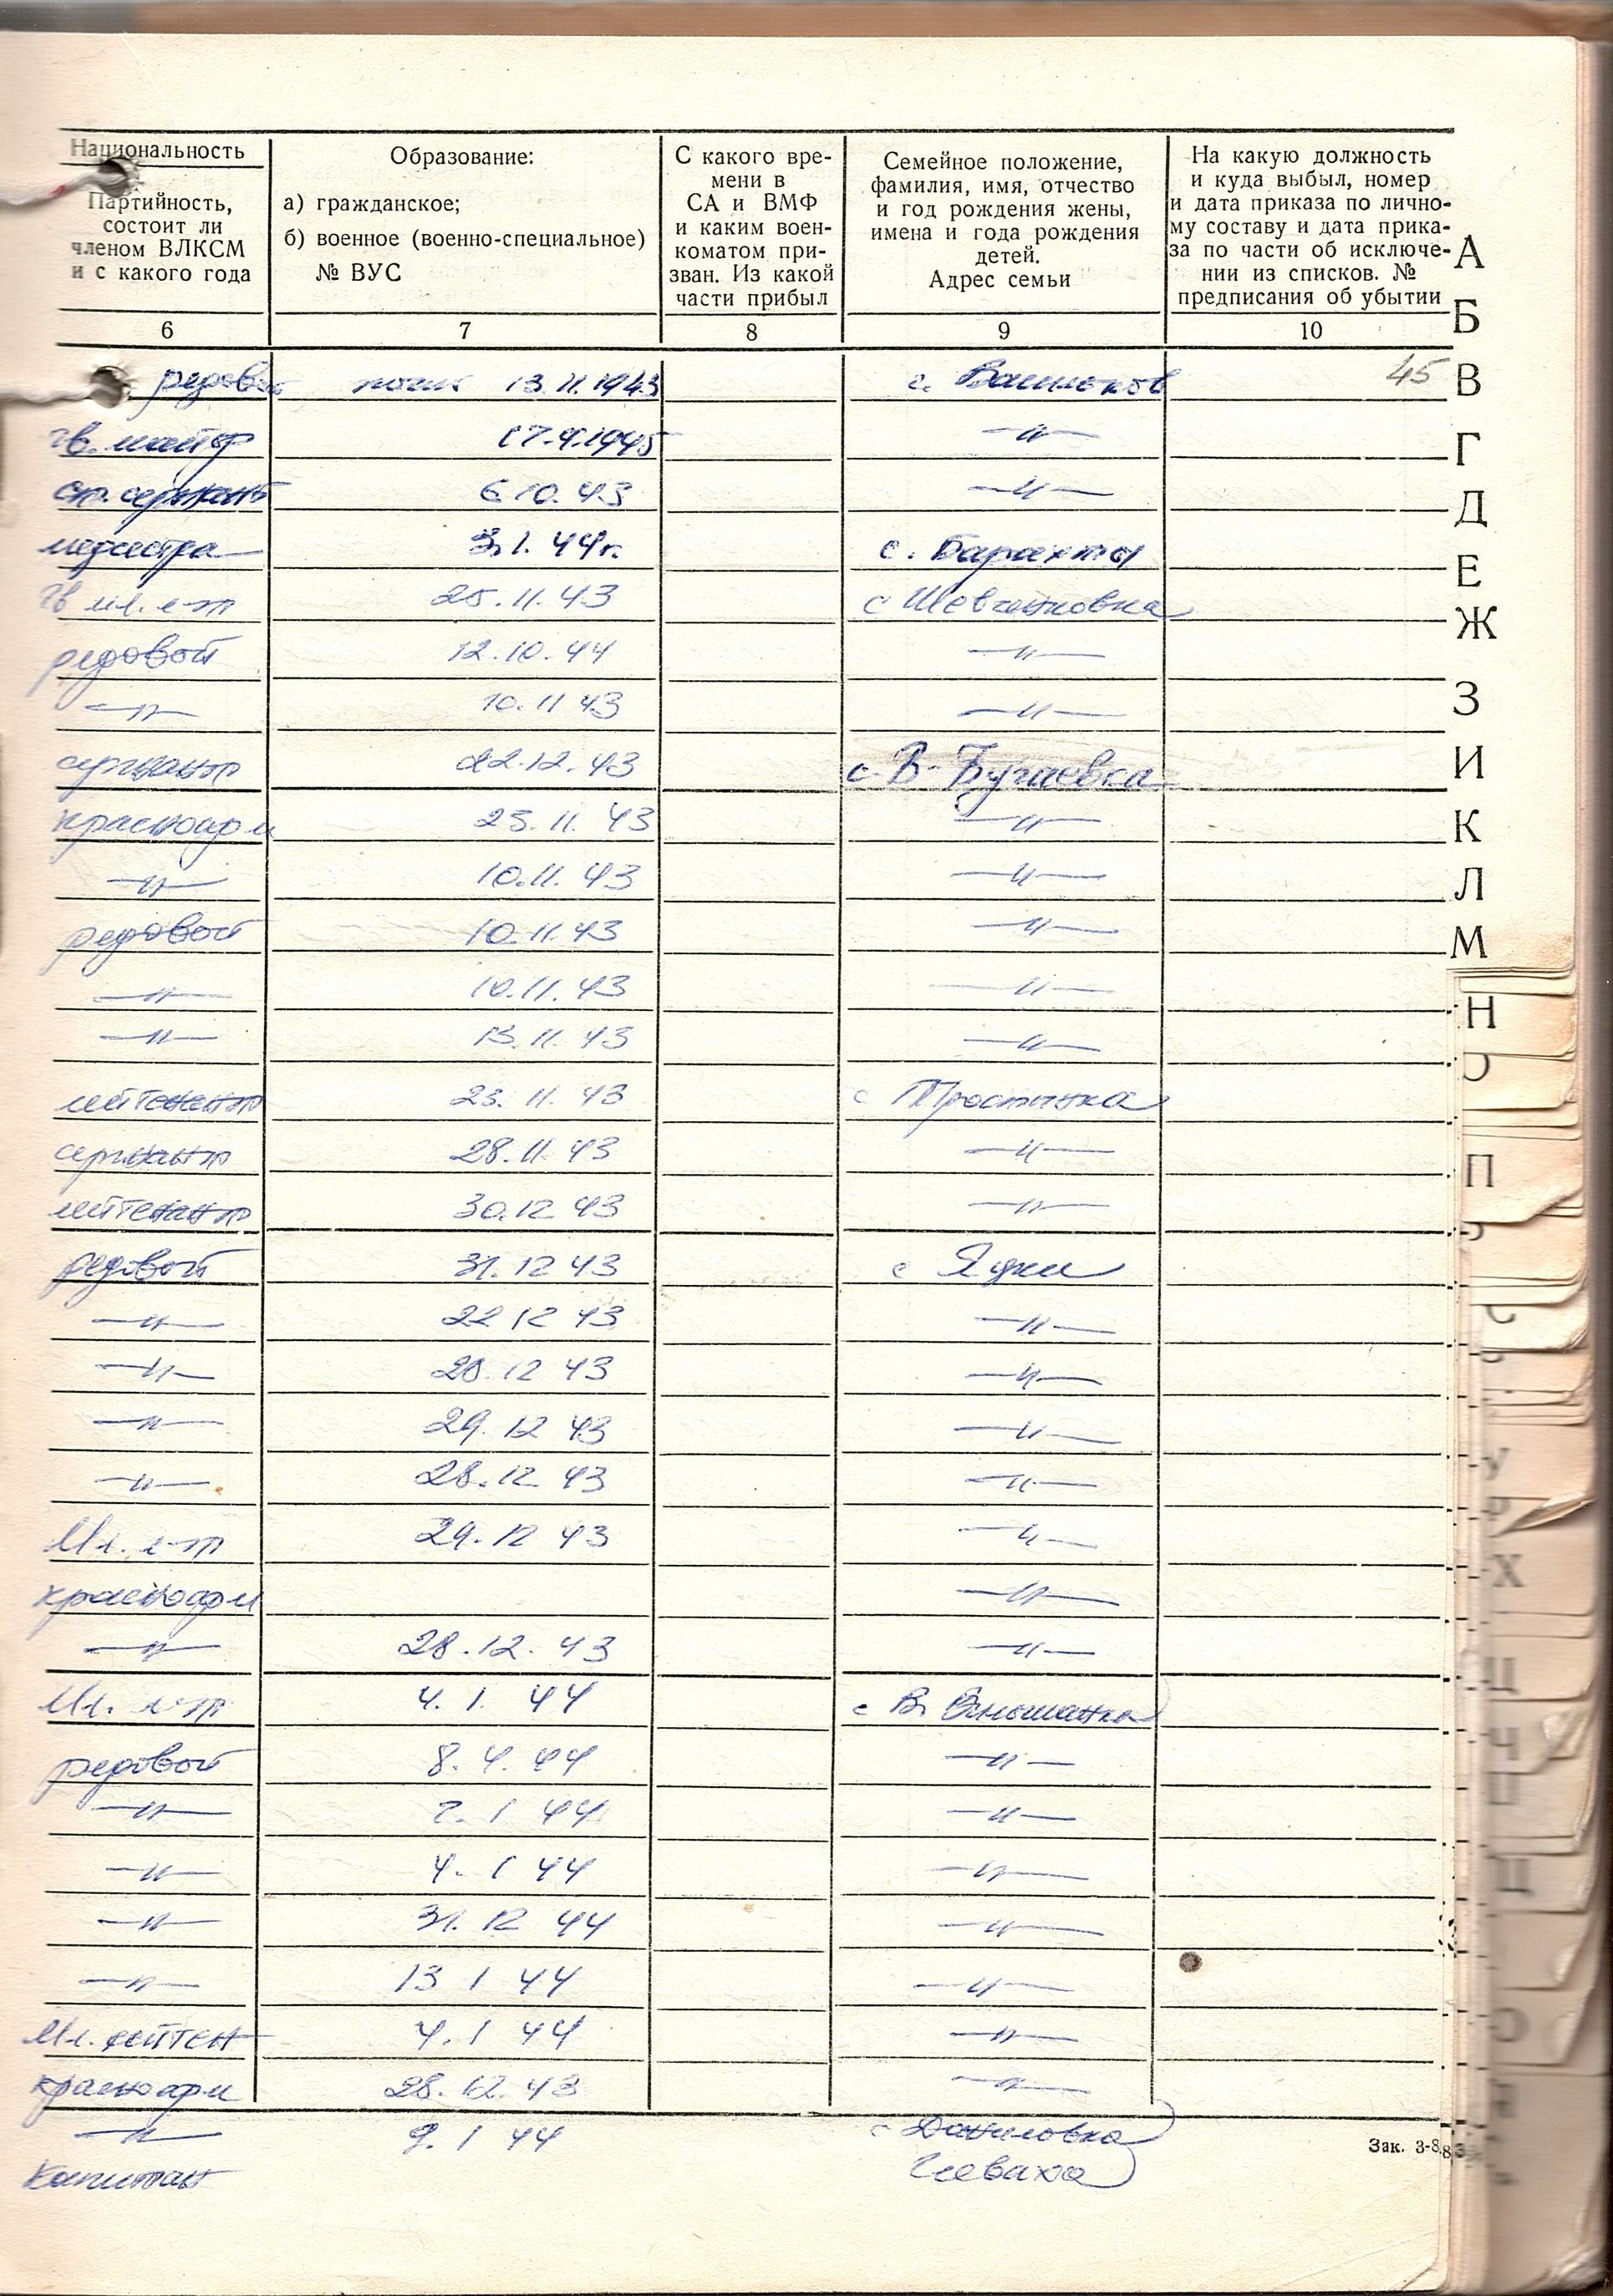 Национальность
Партийность,
состоит ли
членом ВЛКСМ
и с какого года
Образование:
а) гражданское;
б) военное (военно-специальное)
№ ВУС
С какого вре-
мени в
СА и ВМФ
и каким воен-
коматом при-
зван. Из какой
части прибыл
Семейное положение,
фамилия, имя, отчество
и год рождения жены,
имена и года рождения
детей.
Адрес семьи
На какую должность
и куда выбыл, номер
и дата приказа по лично-
му составу и дата прика-
за по части об исключе-
нии из списков. №
предписания об убытии
6 7 8 9 10
редовой 13.11.1943 с. 45
гв. майор 1945 —"—
ст. сержант 6 10. 43 —"—
медсестра 3.1.44г. с. Барахты
гв мл. л-т 25.11.43 с Шевченковка
редовой 12.10.44 —"—
—"— 10.11 43 —"—
сержант 22.12.43 с В-Бугаевка
красноарм 25.11.43 —"—
—"— 10.11.43 —"—
редовой 10.11.43 —"—
—"— 10.11.43 —"—
—"— 13.11.43 —"—
лейтенант 23.11.43 с Тростинка
сержант 28.11.43 —"—
лейтенант 30.12 43 —"—
редовой 31.12 43 с
—"— 22 12 43 —"—
—"— 28.12 43 —"—
—"— 29.12 43 —"—
—"— 28.12 43 —"—
Мл. л-т 29.12 43 —"—
красноарм —"—
—"— 28.12.43 —"—
Мл. л-т 4.1.44 с В.
редовой 8.4.44 —"—
—"— 1 44 —"—
—"— 4.1 44 —"—
—"— 31.12 44 —"—
—"— 13 1 44 —"—
Мл. лейтен 4.1 44 —"—
красноарм 28.12.43 —"—
—"— 9.1 44 с Даниловка
Капитан
Зак. 3-8
А
Б
В
Г
Д
Е
Ж
З
И
К
Л
М
Н
О
П
У
Х
Ц
Ч